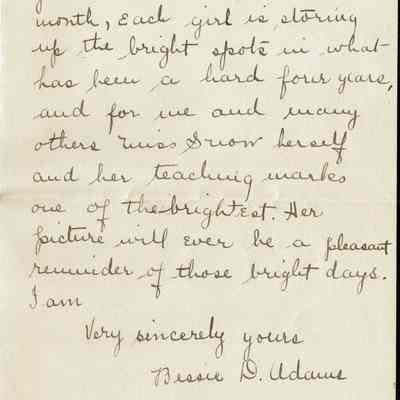 month, Each girl is storing
up the bright spots in what
has been a hard four years,
and for me and many
others Miss Snow herself
and her teaching marks
one of the brightest. Her
picture will ever be a pleasant
reminder of those bright days.
I am
Very sincerely yours
Bessie D. Adams